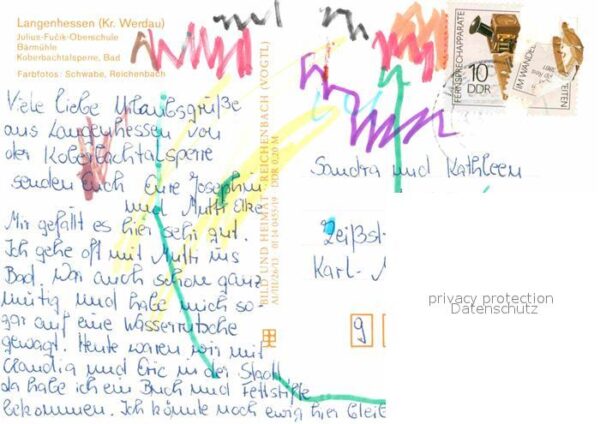 Langenhessen (Kr. Werdau)
Julius-Fučik-Oberschule
Barmühle
Koberbachtalsperre, Bad
Farbfotos: Schwabe, Reichenbach
Viele liebe Urlaubsgrüße
aus Langenhessen von
der Koberbachtalsperre
senden Euch Eure Josephin
und Mutti Elke
Mir gefällt es hier sehr gut.
Ich gehe oft mit Mutti ins
Bad. War auch schon ganz
mutig und habe mich so-
gar auf eine Wasserrutsche
gewagt. Heute waren wir mit
Claudia und Eric in der Stadt
da habe ich ein Buch und Fettstifte
bekommen. Ich könnte noch ewig hier bleib
BILD UND HEIMAT REICHENBACH (VOGTL)
A1/III/26/13 01 14 0455/19 DDR 0,20 M
FERNSPRECHAPPARATE
10
DDR
IM WANDEL
EITEN
Sandra und Kathleen
Zeißst
Karl-
9
privacy protection
Datenschutz